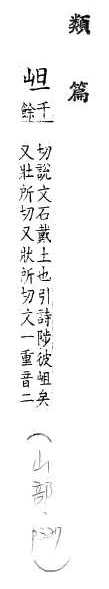 類篇
岨
千餘
切說文石戴土也引詩陟彼岨矣
又壯所切又狀所切文一重音二
(山部. p327)